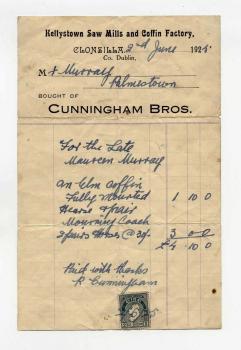 Kellystown Saw Mills and Coffin Factory,
CLONSILLA, 2nd June 192
Co. Dublin,
Mr Murray
Palmerstown
BOUGHT OF
CUNNINGHAM BROS.
For the Late
Maureen Murray
An Elm Coffin
Fully Mounted 1 10 0
Hearse & pair
Mourning Coach
2 pairs Horses @ 30/- 3 00 0
£4 10 0
Paid with thanks
P Cunningham